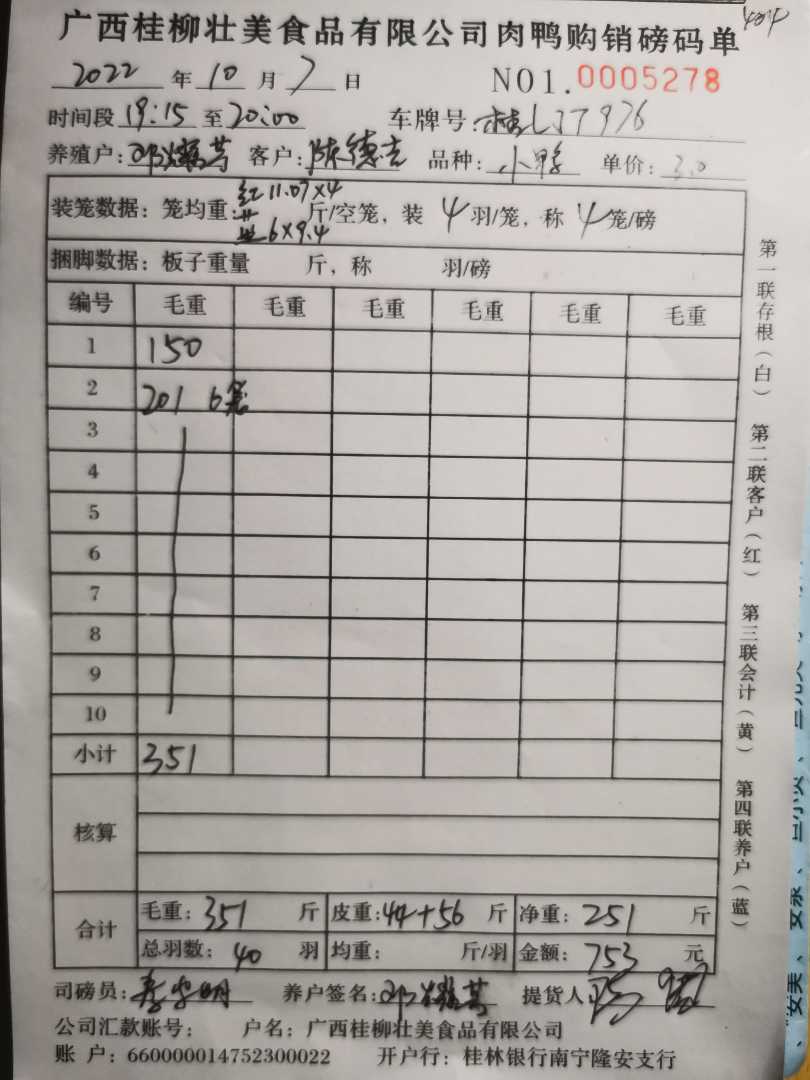 广西桂柳壮美食品有限公司肉鸭购销磅码单
2022 年 10 月 7 日 NO1.0005278
时间段 19:15 至 20:00 车牌号:
养殖户: 客户:陈德 品种:小鸭 单价:3.0
装笼数据:笼均重:红 11.07×4 蓝 6×9.4 斤/空笼,装 4 羽/笼,称 4 笼/磅
捆脚数据:板子重量 斤,称 羽/磅
编号 毛重 毛重 毛重 毛重 毛重 毛重
1 150
2 201 6笼
3
4
5
6
7
8
9
10
小计 351
核算
合计 毛重:351 斤 皮重:44+56 斤 净重:251 斤
总羽数:40 羽 均重: 斤/羽 金额:753 元
司磅员: 养户签名: 提货人:
公司汇款账号: 户名:广西桂柳壮美食品有限公司
账 户:660000014752300022 开户行:桂林银行南宁隆安支行
第一联存根(白) 第二联客户(红) 第三联会计(黄) 第四联养户(蓝)